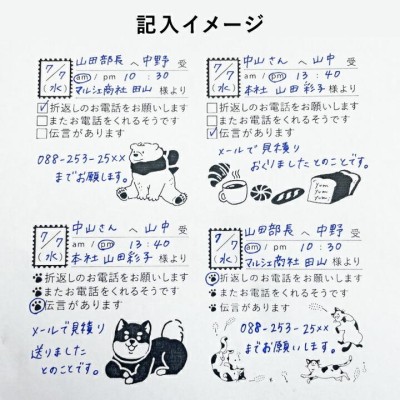 記入イメージ
7/7
(水)
山田部長 へ 中野 受
am / pm 10 : 30
マルシェ商社 田山 様より
折返しのお電話をお願いします
またお電話をくれるそうです
伝言があります
088-253-25××
までお願します。
7/7
(水)
中山さん へ 山中 受
am / pm 13 : 40
本社 山田 彩子 様より
折返しのお電話をお願いします
またお電話をくれるそうです
伝言があります
メールで見積り
おくりましたとのことです。
Yum
Yum
Yum
7/7
(水)
中山さん へ 山中 受
am / pm 13 : 40
本社 山田彩子 様より
折返しのお電話をお願いします
またお電話をくれるそうです
伝言があります
メールで見積り
送りました
とのことです。
7/7
(水)
山田部長 へ 中野 受
am / pm 10 : 30
マルシェ商社 田山 様より
折返しのお電話をお願いします
またお電話をくれるそうです
伝言があります
088-253-25××
までお願いします。